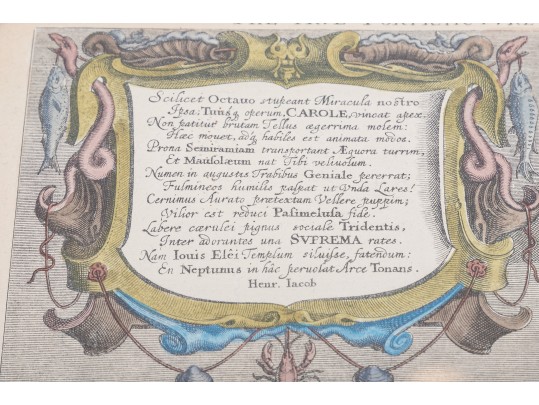 Scilicet Octauo stupeant Miracula nostro
Ipsa; Tuūsq, operum, CAROLE, vincat apex.
Non patitur brutam Tellus ægerrima molem:
Hæc mouet, adq, habiles est animata modos.
Prona Semiramiam transportant Æquora turrim,
Et Mausolæum nat Tibi veliuolum.
Numen in augustus Trabibus Geniale pererrat;
Fulmineos humilis palpat ut Vnda Lares!
Cernimus Aurato prætextum Vellere puppim;
Vilior est reduci Pasimelusa fide.
Labere cærulei pignus sociale Tridentis,
Inter adorantes una SVPREMA rates.
Nam Iouis Elêi Templum siluisse, fatendum:
En Neptunus in hâc peruolat Arce Tonans.
Henr. Iacob